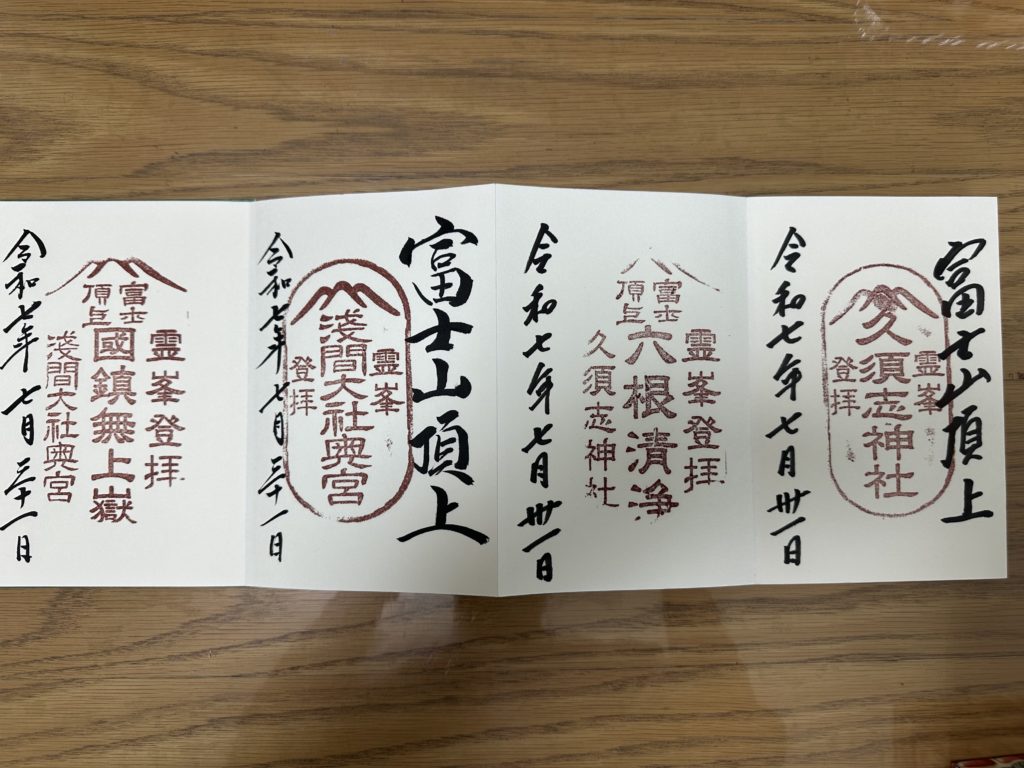 富士山頂上
霊峯
久須志神社
登拝
令和七年七月卅一日
霊峯登拝
富士
頂上
六根清浄
久須志神社
令和七年七月卅一日
富士山頂上
霊峯
淺間大社奥宮
登拝
令和七年七月三十一日
霊峯登拝
富士
頂上
國鎮無上嶽
淺間大社奥宮
令和七年七月三十一日